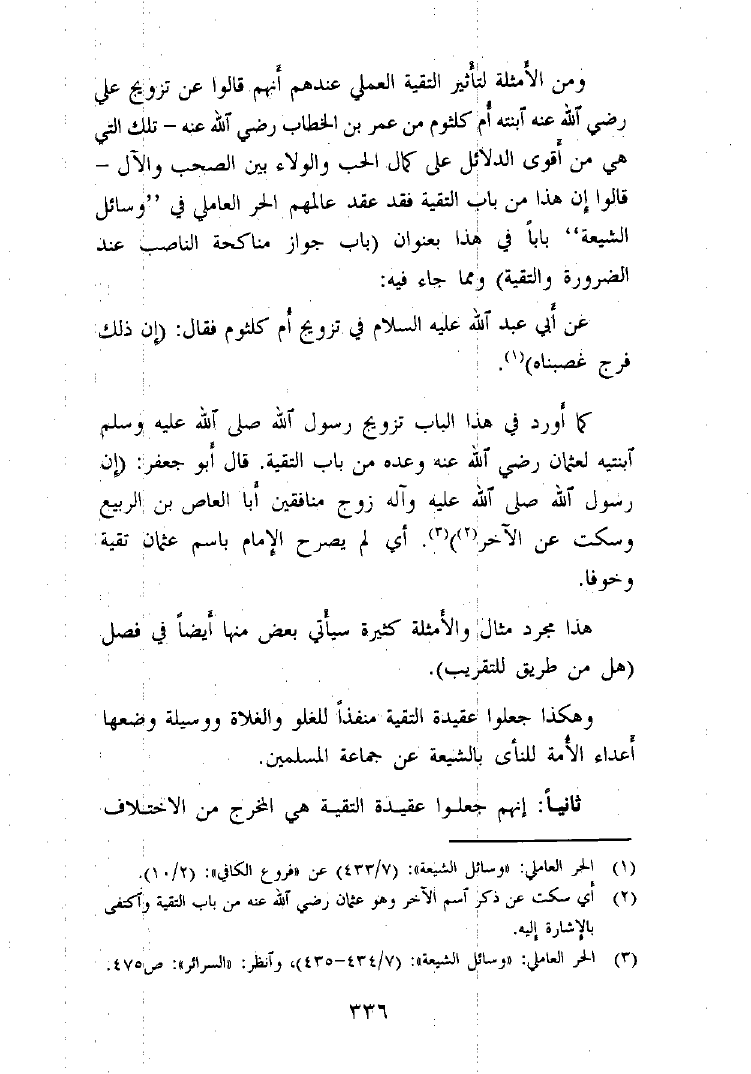 ومن الأمثلة لتأثير التقية العملي عندهم أنهم قالوا عن تزويج علي
رضي ٱلله عنه ٱبنته أم كلثوم من عمر بن الخطاب رضي ٱلله عنه – تلك التي
هي من أقوى الدلائل على كمال الحب والولاء بين الصحب والآل –
قالوا إن هذا من باب التقية فقد عقد عالمهم الحر العاملي في ‘‘وسائل
الشيعة’’ باباً في هذا بعنوان (باب جواز مناكحة الناصب عند
الضرورة والتقية) ومما جاء فيه:
عن أبي عبد ٱلله عليه السلام في تزويج أم كلثوم فقال: (إن ذلك
فرج غصبناه)(١).
كما أورد في هذا الباب تزويج رسول ٱلله صلى ٱلله عليه وسلم
ٱبنتيه لعثمان رضي ٱلله عنه وعده من باب التقية. قال أبو جعفر: (إن
رسول ٱلله صلى ٱلله عليه وآله زوج منافقين أبا العاص بن الربيع
وسكت عن الآخر(٢))(٣). أي لم يصرح الإمام باسم عثمان تقية
وخوفا.
هذا مجرد مثال والأمثلة كثيرة سيأتي بعض منها أيضاً في فصل
(هل من طريق للتقريب).
وهكذا جعلوا عقيدة التقية منفذاً للغلو والغلاة ووسيلة وضعها
أعداء الأمة للنأى بالشيعة عن جماعة المسلمين.
ثانياً: إنهم جعلوا عقيدة التقية هي المخرج من الاختلاف
(١) الحر العاملي: «وسائل الشيعة»: (٤٣٣/٧) عن «فروع الكافي»: (١٠/٢).
(٢) أي سكت عن ذكر ٱسم الآخر وهو عثمان رضي ٱلله عنه من باب التقية وٱكتفى
بالإشارة إليه.
(٣) الحر العاملي: «وسائل الشيعة»: (٤٣٤/٧–٤٣٥)، وٱنظر: «السرائر»: ص٤٧٥.
٣٣٦